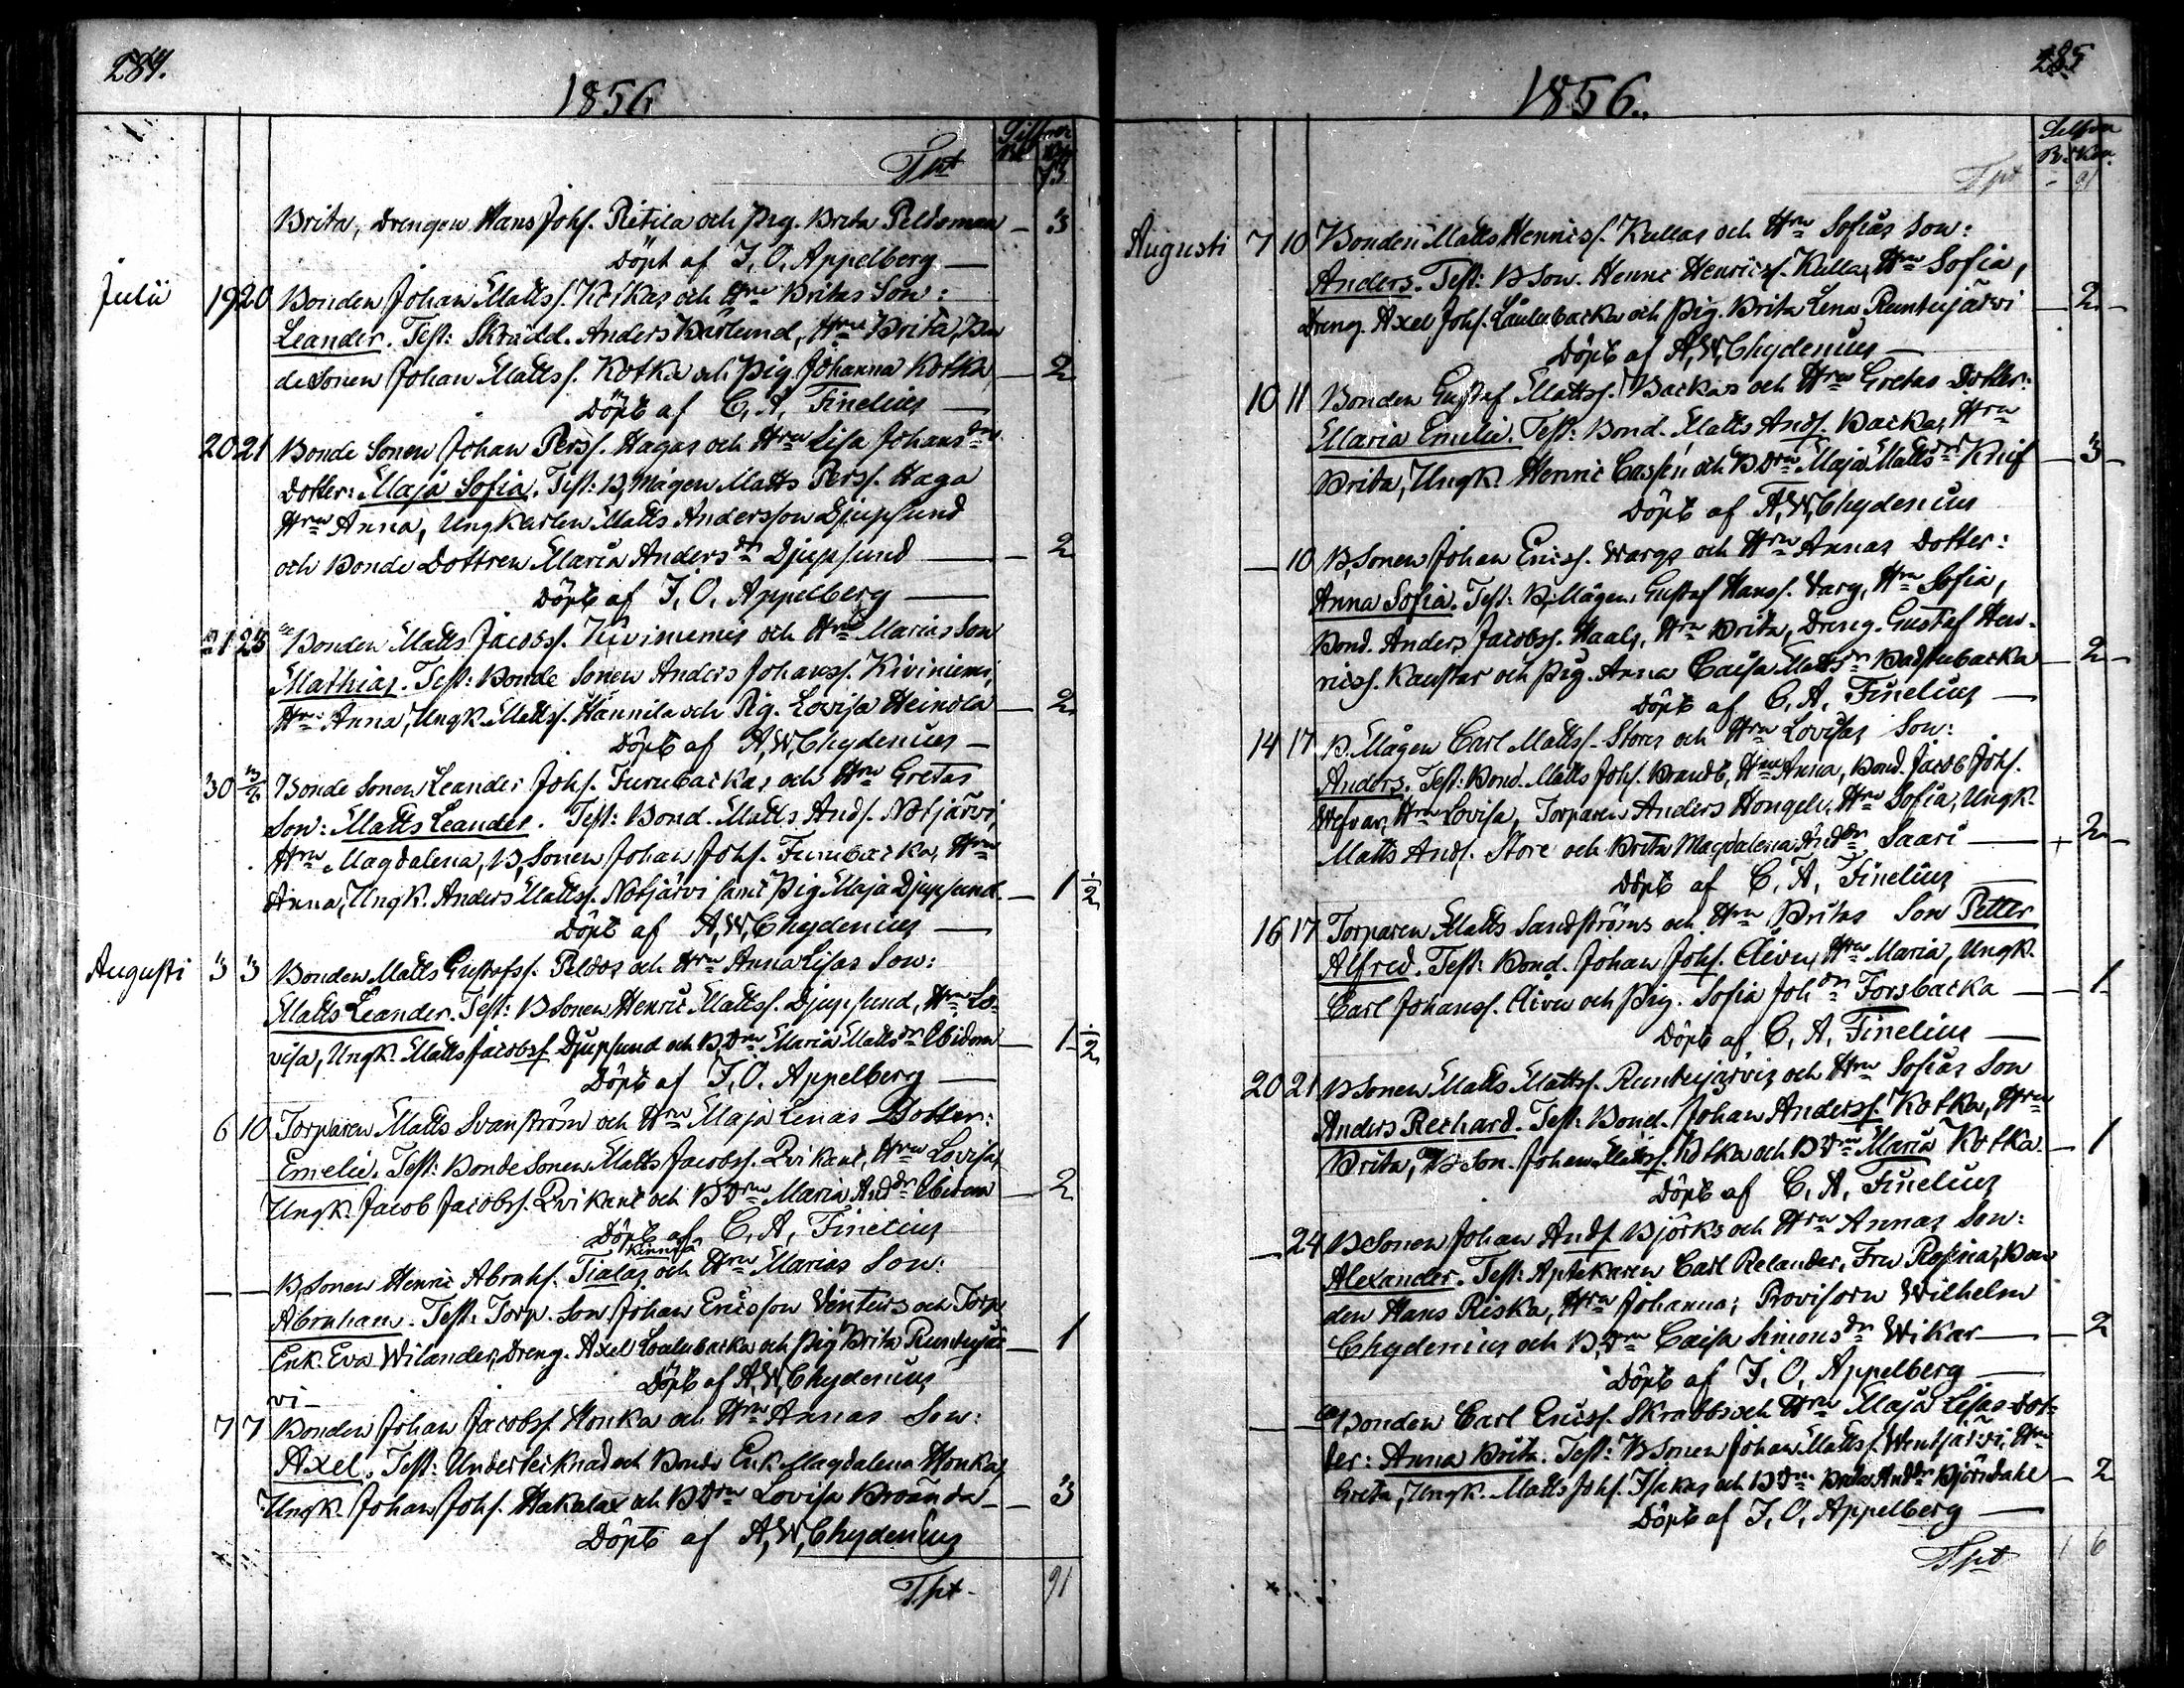 284.
1856
Silfver
Rbl Kop
Tpt 73
Brita, Drengen Hans Johs. Ritila och Pig. Brita Peldoman — 3
Döpt af J. O. Appelberg —
Julii 19 20 Bonden Johan Mattss. Koskas och Hru Britas Son:
Leander. Test: Skrädd. Anders Kärlund, Hru Brita, Bon
desonen Johan Mattss. Kotka och Pig. Johanna Kotka — 2
Döpt af C. A. Finelius —
20 21 Bonde Sonen Johan Perss. Hagas och Hru Lisa Johansdrs
Dotter: Maja Sofia. Test: B. Mågen Matts Perss. Haga
Hru Anna, Ungkarlen Matts Andersson Djupsund
och Bonde Dottren Maria Andersdr Djupsund — 2
Döpt af J. O. Appelberg —
21 25 Bonden Matts Jacobss. Kiviniemis och Hru Marias Son
Mathias. Test: Bonde Sonen Anders Johanss. Kiviniemi,
Hru Anna, Ungk. Mattss. Hannila och Pig. Lovisa Heinola — 2
Döpt af A. W. Chydenius —
30 3/8 Bonde Sonen Leander Johs. Furubackas och Hru Gretas
Son: Matts Leander. Test: Bond. Matts Ands. Notjärvi,
Hru Magdalena, B. Sonen Johan Johs. Furubacka, Hru
Anna, Ungk. Anders Mattss. Notjärvi samt Pig Maja Djupsund. — 1 1/2
Döpt af A. W. Chydenius —
Augusti 3 3 Bonden Matts Gustafss. Peldos och Hru Anna Lisas Son:
Matts Leander. Test: B Sonen Henric Mattss. Djupsund, Hru Lo-
visa, Ungk. Matts Jacobss. Djupsund och B Drn Maria Mattsdr Åbidom — 1 1/2
Döpt af J. O. Appelberg —
6 10 Torparen Matts Svanström och Hru Maja Lenas Dotter:
Emelie. Test: Bonde Sonen Matts Jacobss. Qvikant, Hru Lovisa,
Ungk. Jacob Jacobss. Qvikant och B Drn Maria Anddr — 2
Döpt af C. A. Finelius
Kinnuä
— — B. Sonen Henric Abrahs. Tialas och Hru Marias Son:
Abraham. Test: Torp. Son Johan Ericsson Vintturs och Torp.
Enk. Eva Wilander, Dreng. Axel Loulubacka och Pig Brita Runtujär — 1
vi — Döpt af A. W. Chydenius
7 7 Bonden Johan Jacobss. Honka och Hru Annas Son:
Axel. Test: Undertecknad och Bonde Enk. Magdalena Honka,
Ungk. Johan Johs. Hakalax och B Drn Lovisa Broända — 3
Döpt af A. W. Chydenius
Tpt 91
285
1856.
Silfver
R. Kop.
Tpt - 91
Augusti 7 10 Bonden Matts Henricss. Kullas och Hru Sofias Son:
Anders. Test: B Son. Henric Henricss. Kulla, Hru Sofia,
Dreng. Axel Johs. Laulubacka och Pig. Brita Lena Runtujärvi — 2 —
Döpt af A. W. Chydenius —
10 11 Bonden Gustaf Mattss. Backas och Hru Gretas Dotter:
Maria Emelie. Test: Bond. Matts Ands. Backa, Hru
Brita, Ungk. Henric Cassén och B Drn Maja Mattsdr Knif — 3 —
Döpt af A. W. Chydenius
— 10 B. Sonen Johan Ericss. Wargs och Hru Annas Dotter:
Anna Sofia. Test: B. Mågen Gustaf Hanss. Varg, Hru Sofia,
Bond. Anders Jacobss. Haals, Hru Brita, Dreng. Gustaf Hen-
ricss. Kaustar och Pig. Anna Caisa Mattsdr Badstubacka — 2 —
Döpt af C. A. Finelius —
14 17 B. Mågen Carl Mattss. Stores och Hru Lovisas Son:
Anders. Test: Bond. Matts Johs. Brandt, Hru Anna, Bond. Jacob Johs.
Hru Lovisa, Torparen Anders Hongell, Hru Sofia, Ungk.
Matts Ands. Store och Brita Magdalena Anddr Saari — 2 —
Döpt af C. A. Finelius —
16 17 Torparen Matts Sandströms och Hru Britas Son Petter
Alfred. Test: Bond. Johan Johs. Cliver, Hru Maria, Ungk.
Carl Johanss. Cliver och Pig. Sofia Johdr Forsbacka — 1 —
Döpt af C. A. Finelius —
20 21 B Sonen Matts Mattss. Runtujärvis och Hru Sofias Son
Anders Rechard. Test: Bond. Johan Anderss. Kotka, Hru
Brita, B Son. Johan Mattss. Kotka och B Drn Maria Kotka — 1
Döpt af C. A. Finelius
— 24 B Sonen Johan Ands Björks och Hru Annas Son:
Alexander. Test: Aptekaren Carl Relander, Fru Rosina, Bon
den Hans Riska, Hru Johanna; Provisorn Wilhelm
Chydenius och B. Drn Caisa Simonsdr Wikar — 2
Döpt af J. O. Appelberg —
— Bonden Carl Ericss. Skrabbs och Hru Maja Lisas Dot-
ter: Anna Brita. Test: B Sonen Johan Mattss. Wentjärvi, Hru
Greta, Ungk. Matts Johs. Isakas och B Drn Brita Anddr Björndahl — 2
Döpt af J. O. Appelberg —
Tpt 1 6